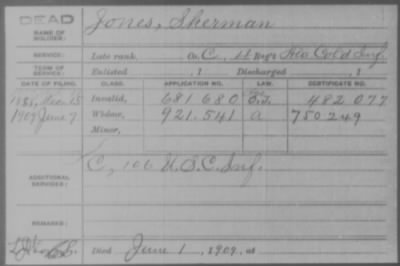 DEAD Jones, Sherman
NAME OF
SOLDIER:
SERVICE: Late rank, On C, 4 Reg't Ala Col'd Inf.
TERM OF
SERVICE: Enlisted , 1 Discharged , 1
DATE OF FILING. CLASS. APPLICATION NO. LAW. CERTIFICATE NO.
188 15 Invalid, 681 680 482 077
1909 June 7 Widow, 921.541 a 750249
Minor,
C, 106 U.S.C. Inf.
ADDITIONAL
SERVICES:
REMARKS:
Died June 1, 1909, at